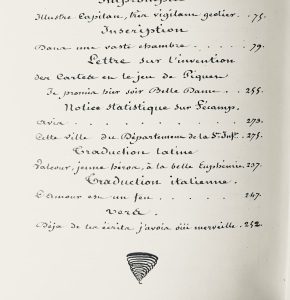 Impromptu
Illustre Capitan, très vigilant geôlier . 75.
Inscription
Dans une vaste chambre . . . . 79.
Lettre sur l'invention
des Cartes en le jeu de Piquet
Je promis hier soir Belle Dame . . 255.
Notice statistique sur Fécamp.
Avis . . . . . . 273.
Cette ville du Département de la Sne Infre. 275.
Traduction latine
Valcour, jeune héros, à la belle Euphémie. 237.
Traduction italienne.
L'Amour est un feu . . . . 247.
vers.
Déja de tes écrits, j'avois oüi merveille. 252.